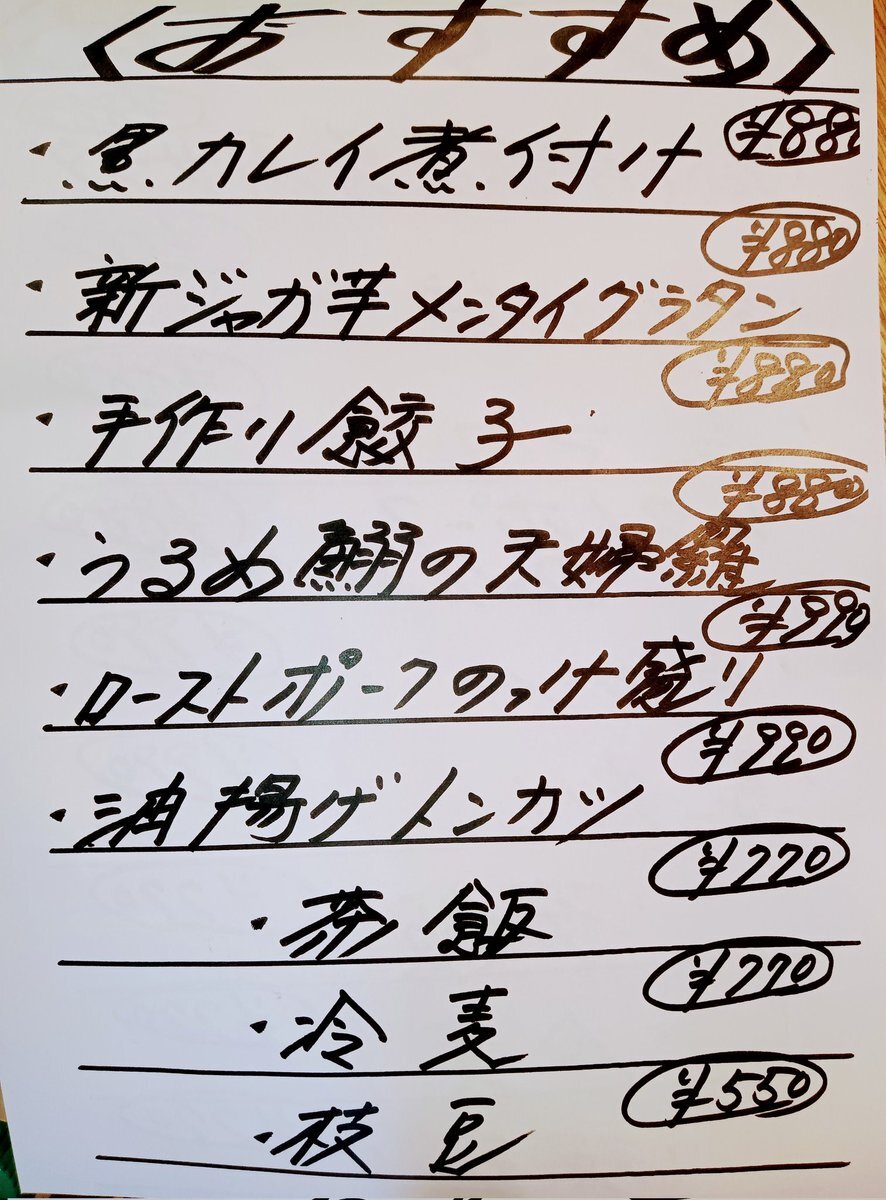 〈おすすめ〉
¥88
・黒カレイ煮付け
¥880
・新ジャガ芋メンタイグラタン
¥880
・手作り餃子
¥880
・うるめ鰯の天婦羅
¥990
・ローストポークのっけ盛り
¥990
・油揚ゲトンカツ
¥770
・茶飯
¥770
・冷麦
¥550
・枝豆